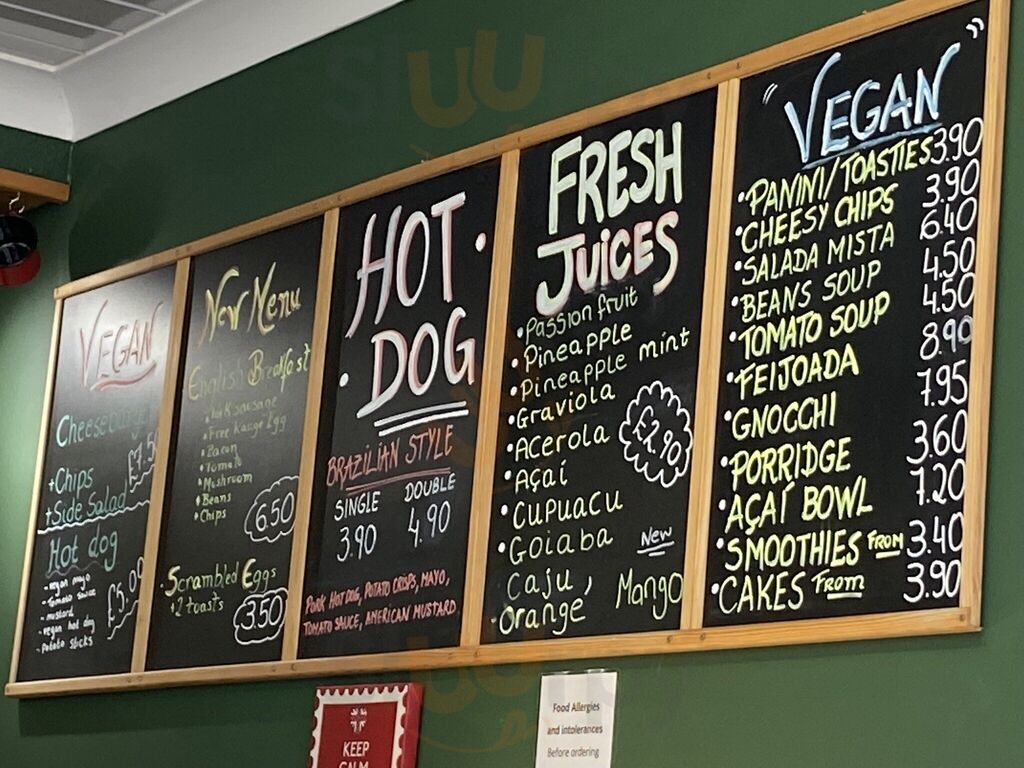 VEGAN
Cheeseburger
+Chips
+Side Salad
£7.50
Hot dog
- vegan mayo
- Tomato sauce
- mustard
- vegan hot dog
- Potato sticks
£5.00
New Menu
English Breakfast
Pork sausage
Free Range Egg
Bacon
Tomato
Mushroom
Beans
Chips
6.50
Scrambled Eggs
+2 toasts
3.50
HOT
DOG
BRAZILIAN STYLE
SINGLE DOUBLE
3.90 4.90
PORK HOT DOG, POTATO CRISPS, MAYO,
TOMATO SAUCE, AMERICAN MUSTARD
FRESH
JUICES
• Passion fruit
• Pineapple
• Pineapple mint
• Graviola
• Acerola
• Açaí
• Cupuacu
• Goiaba New
Caju, Mango
Orange
£2.90
"VEGAN"
• PANINI/TOASTIES 3.90
• CHEESY CHIPS 3.90
• SALADA MISTA 6.40
• BEANS SOUP 4.50
• TOMATO SOUP 4.50
• FEIJOADA 8.90
• GNOCCHI 7.95
• PORRIDGE 3.60
• AÇAÍ BOWL 7.20
• SMOOTHIES FROM 3.40
• CAKES FROM 3.90
KEEP
CALM
Food Allergies
and intolerances
Before ordering